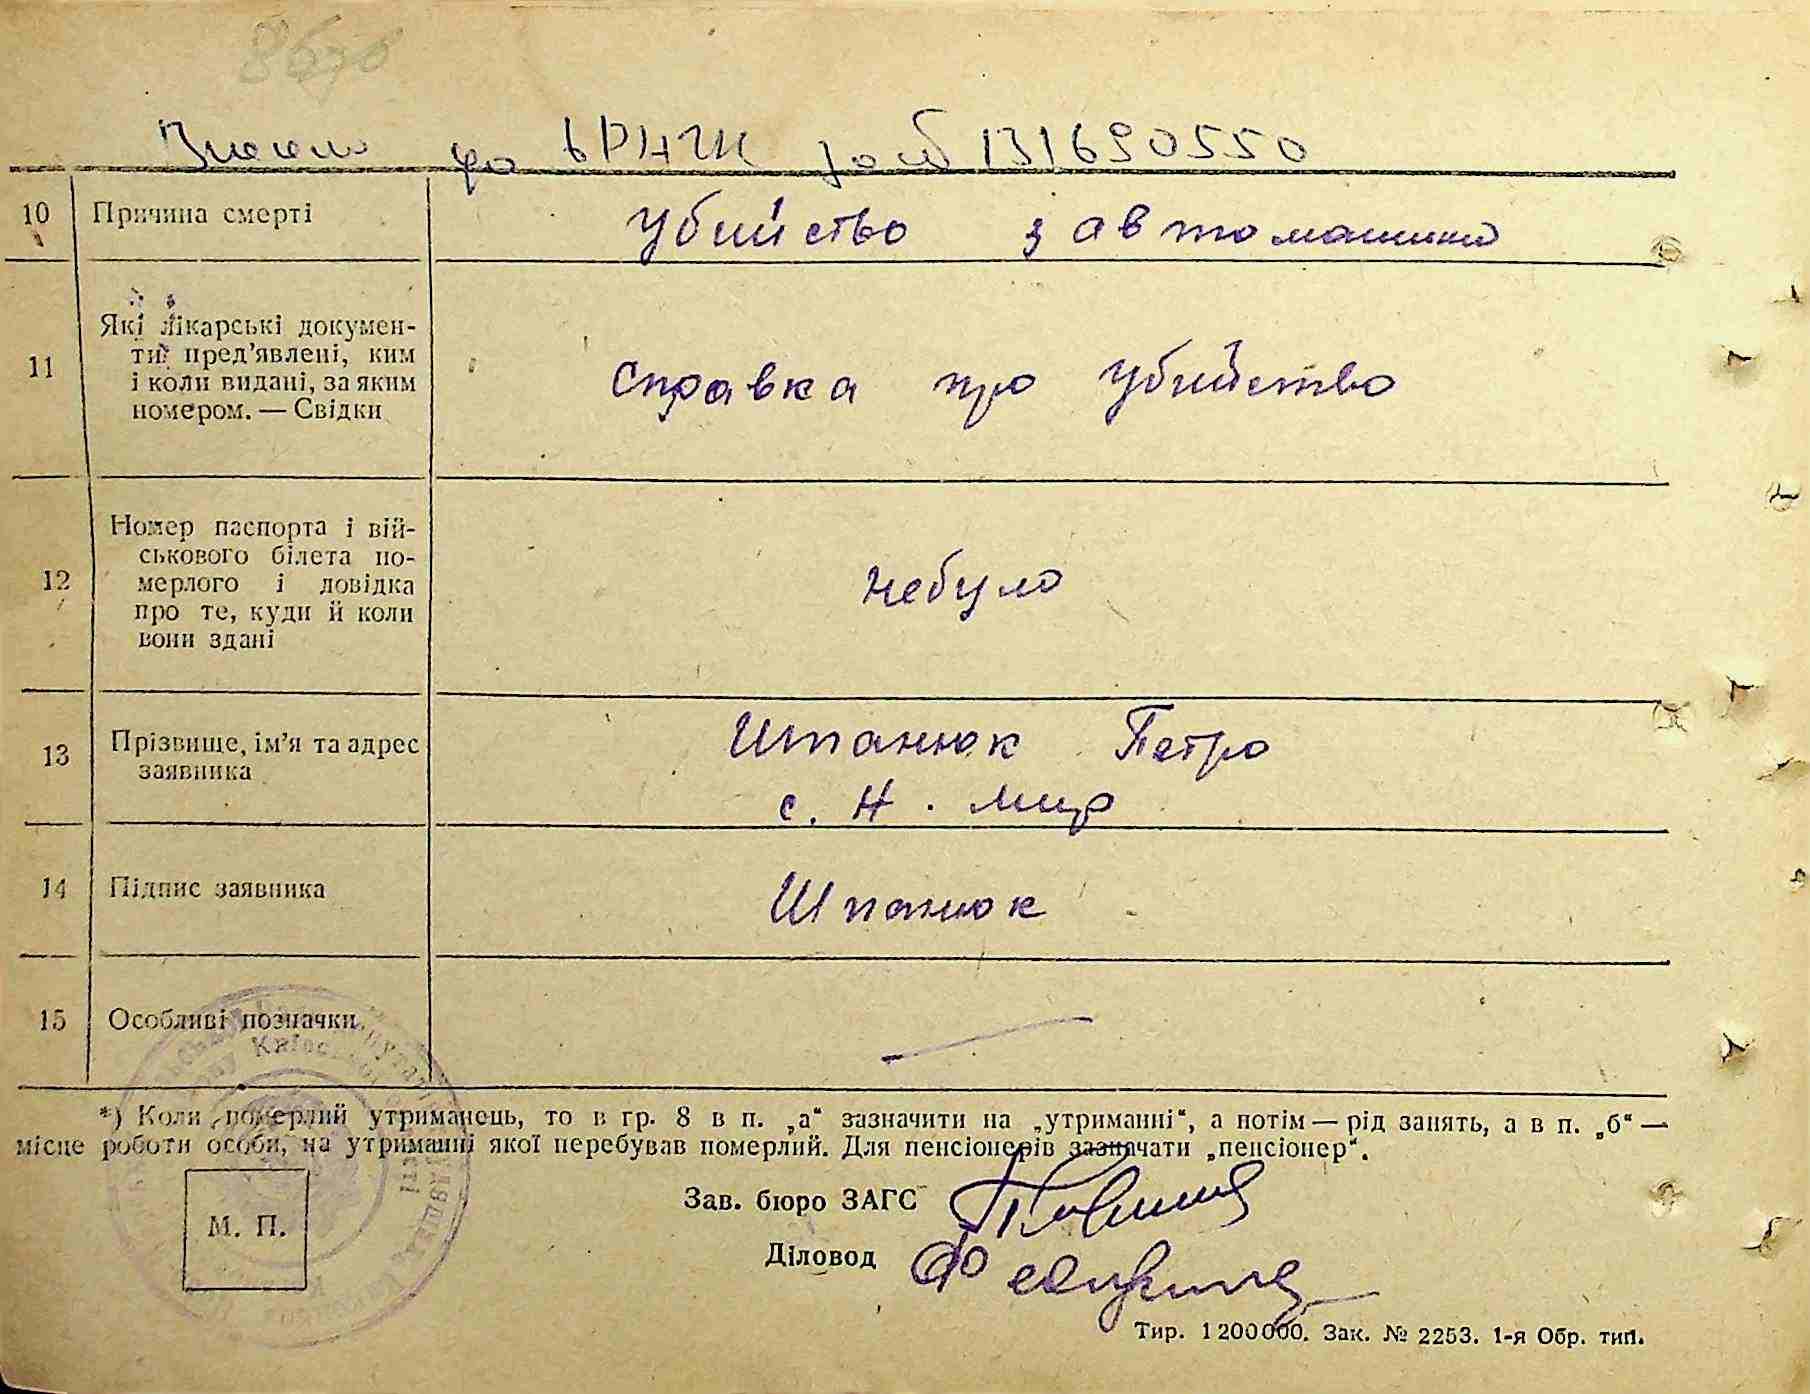 Внесено до ЄРНЧК за № 131690550
10 Причина смерті Убийство з автомашини
11 Які лікарські докумен-
ти пред'явлені, ким
і коли видані, за яким
номером. — Свідки
Справка про убийство
12 Номер паспорта і вій-
ськового білета по-
мерлого і довідка
про те, куди й коли
вони здані
небуло
13 Прізвище, ім'я та адрес
заявника
Штанюк Петро
с. Н. Мир
14 Підпис заявника Шпанюк
15 Особливі позначки
*) Коли померлий утриманець, то в гр. 8 в п. „а“ зазначити на „утриманні“, а потім — рід занять, а в п. „б“ —
місце роботи особи, на утриманні якої перебував померлий. Для пенсіонерів зазначати „пенсіонер“.
Зав. бюро ЗАГС
М. П.
Діловод
Тир. 1200000. Зак. № 2253. 1-я Обр. тип.